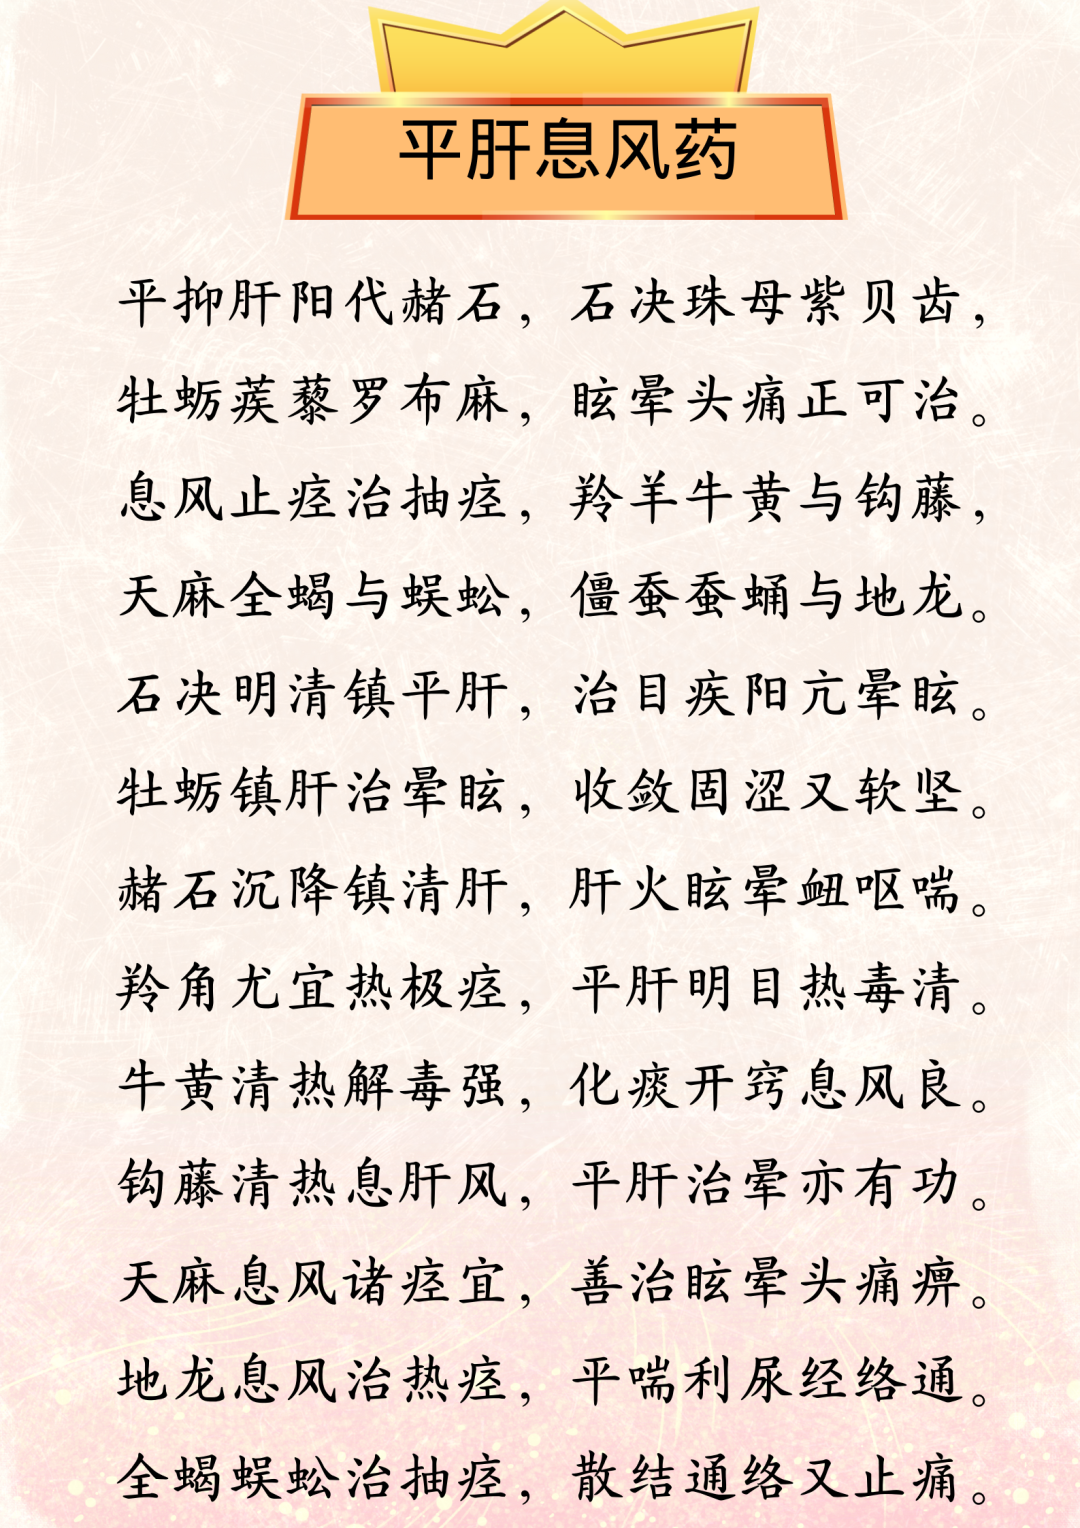 平肝息风药
平抑肝阳代赭石，石决珠母紫贝齿，
牡蛎蒺藜罗布麻，眩晕头痛正可治。
息风止痉治抽痉，羚羊牛黄与钩藤，
天麻全蝎与蜈蚣，僵蚕蚕蛹与地龙。
石决明清镇平肝，治目疾阳亢晕眩。
牡蛎镇肝治晕眩，收敛固涩又软坚。
赭石沉降镇清肝，肝火眩晕衄呕喘。
羚角尤宜热极痉，平肝明目热毒清。
牛黄清热解毒强，化痰开窍息风良。
钩藤清热息肝风，平肝治晕亦有功。
天麻息风诸痉宜，善治眩晕头痛痹。
地龙息风治热痉，平喘利尿经络通。
全蝎蜈蚣治抽痉，散结通络又止痛。